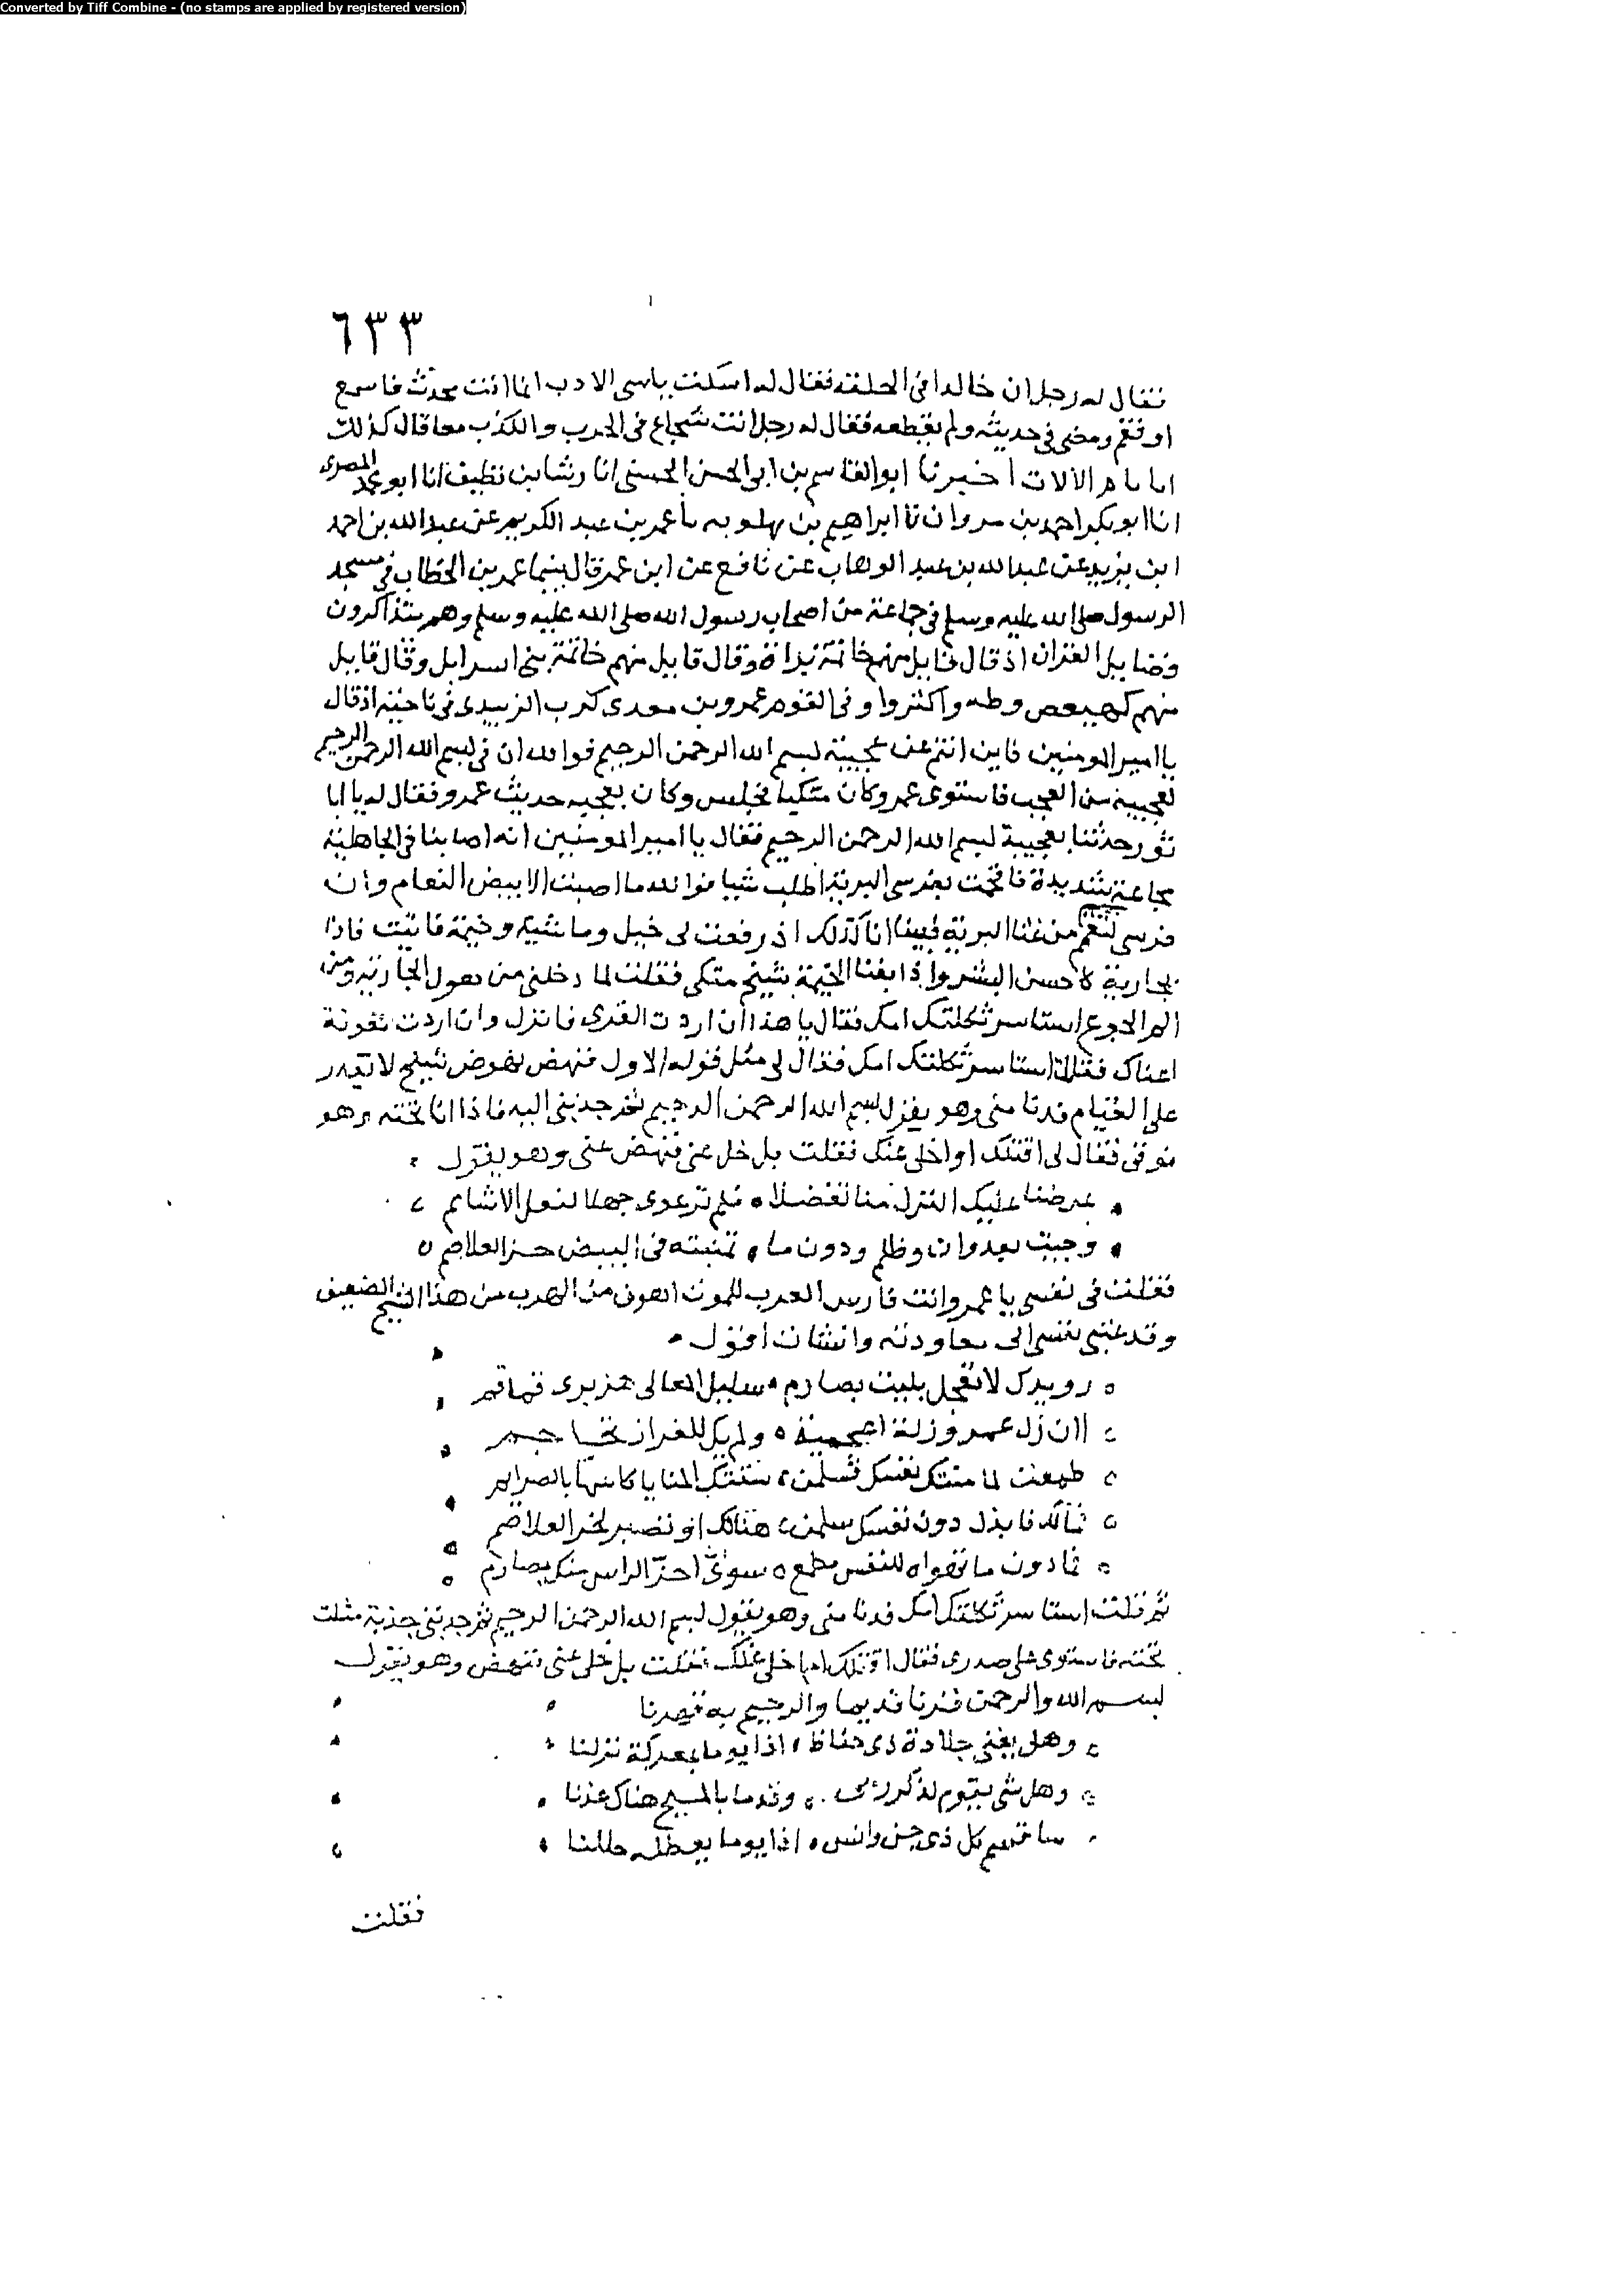 Converted by Tiff Combine - (no stamps are applied by registered version)
٦٣٣
فقال له رجل ان خالدا في الحلقة فقال له اسكت يا سي الادب انما انت محدث فاسمع
او فقم ومضى في حديثه ولم يقطعه فقال له رجل انت شجاع في الحرب والكذب معا قال كذلك
انا تام الالات اخبرنا ابو القاسم بن ابي الحسن الحسني انا رشا بن نظيف انا ابو محمد المصري
انا ابو بكر احمد بن مروان نا ابراهيم بن بهلويه نا عمر بن عبد الكريم عن عبد الله بن احمد
ابن يزيد عن عبد الله بن عبد الوهاب عن نافع عن ابن عمر قال بينما عمر بن الخطاب في مسجد
الرسول صلى الله عليه وسلم في جماعة من اصحاب رسول الله صلى الله عليه وسلم وهم يتذاكرون
فضايل القران اذ قال قايل منهم خاتمة براة وقال قايل منهم خاتمة بني اسرايل وقال قايل
منهم كهيعص وطه واكثروا وفي القوم عمرو بن معدي كرب الزبيدي في ناحية اذ قال
يا امير المومنين فاين انتم عن عجيبة بسم الله الرحمن الرحيم فوالله ان في بسم الله الرحمن الرحيم
لعجيبة من العجب فاستوى عمر وكان متكيا فجلس وكان يعجبه حديث عمرو فقال له يا ابا
ثور حدثنا بعجيبة بسم الله الرحمن الرحيم فقال يا امير المومنين انه اصابنا في الجاهلية
مجاعة شديدة فاقحمت بفرسي البرية اطلب شيا فوالله ما اصبت الا بيض النعام وان
فرسي من غثا البرية فبينا انا كذلك اذ رفعت لي خيل وماشية وخيمة فاتيت فاذا
بجارية كاحسن البشر واذا بفنا الخيمة شيخ متكي فقلت لما دخلني من هول الجارية ومن
الم الجوع استاسر ثكلتك امك فقال يا هذا ان اردت القرى فانزل وان اردت معونة
اعناك فقلت استاسر ثكلتك امك فقال لي مثل قوله الاول فنهض نهوض شيخ لا يقدر
على القيام فدنا مني وهو يقول بسم الله الرحمن الرحيم ثم جذبني اليه فاذا انا تحته وهو
فوقي فقال لي اقتلك او اخلي عنك فقلت بل خل عني فنهض عني وهو يقول
عرضنا عليك النزل منا تفضلا فلم ترعوي جهلا لفعل الاشايم
وجيت بعدوان وظلم ودون ما تمنيته في البيض حز العلاصم
فقلت في نفسي يا عمرو انت فارس العرب للموت اهون من الهرب من هذا الشيخ الضعيف
وقد عتبي نفسي الى معاودته وانشات اقول
رويدك لا تعجل بليت بصارم سليل المعالي هزبري قماقم
اان زل عمرو زلة اعجمية ولم يك للفرار
طمعت لما منتك نفسك تسلمن سقتك المنايا كاسها بالصرايم
فابذل دون نفسك سلمن هنالك او تصبر لحز العلاصم
فما دون ما تهواه للنفس مطمع سوى احز الراس منك بصارم
ثم قلت استاسر ثكلتك امك فدنا مني وهو يقول بسم الله الرحمن الرحيم ثم جذبني جذبة مثلت
تحته فاستوى على صدري فقال اقتلك ام اخلي عنك فقلت بل خلي عني فنهض وهو يقول
بسم الله والرحمن فزنا قديما والرحيم به قهرنا
وهل يغني جلادة ذي حفاظ اذا يوما بمعركة نزلنا
وهل شي يقوم لذكر ربي وقدما بالمسيح هناك عذنا
كل ذي جن وانس اذا يوما حللنا
فقلت